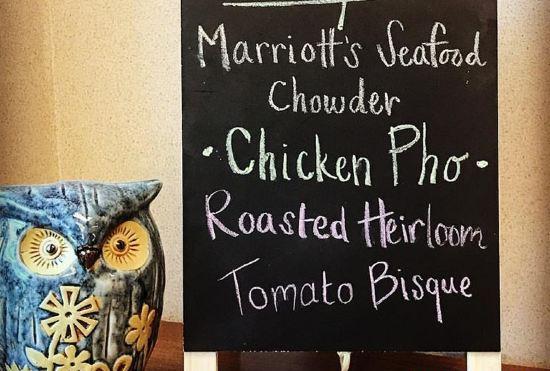 Marriott's Seafood
Chowder
• Chicken Pho •
Roasted Heirloom
Tomato Bisque